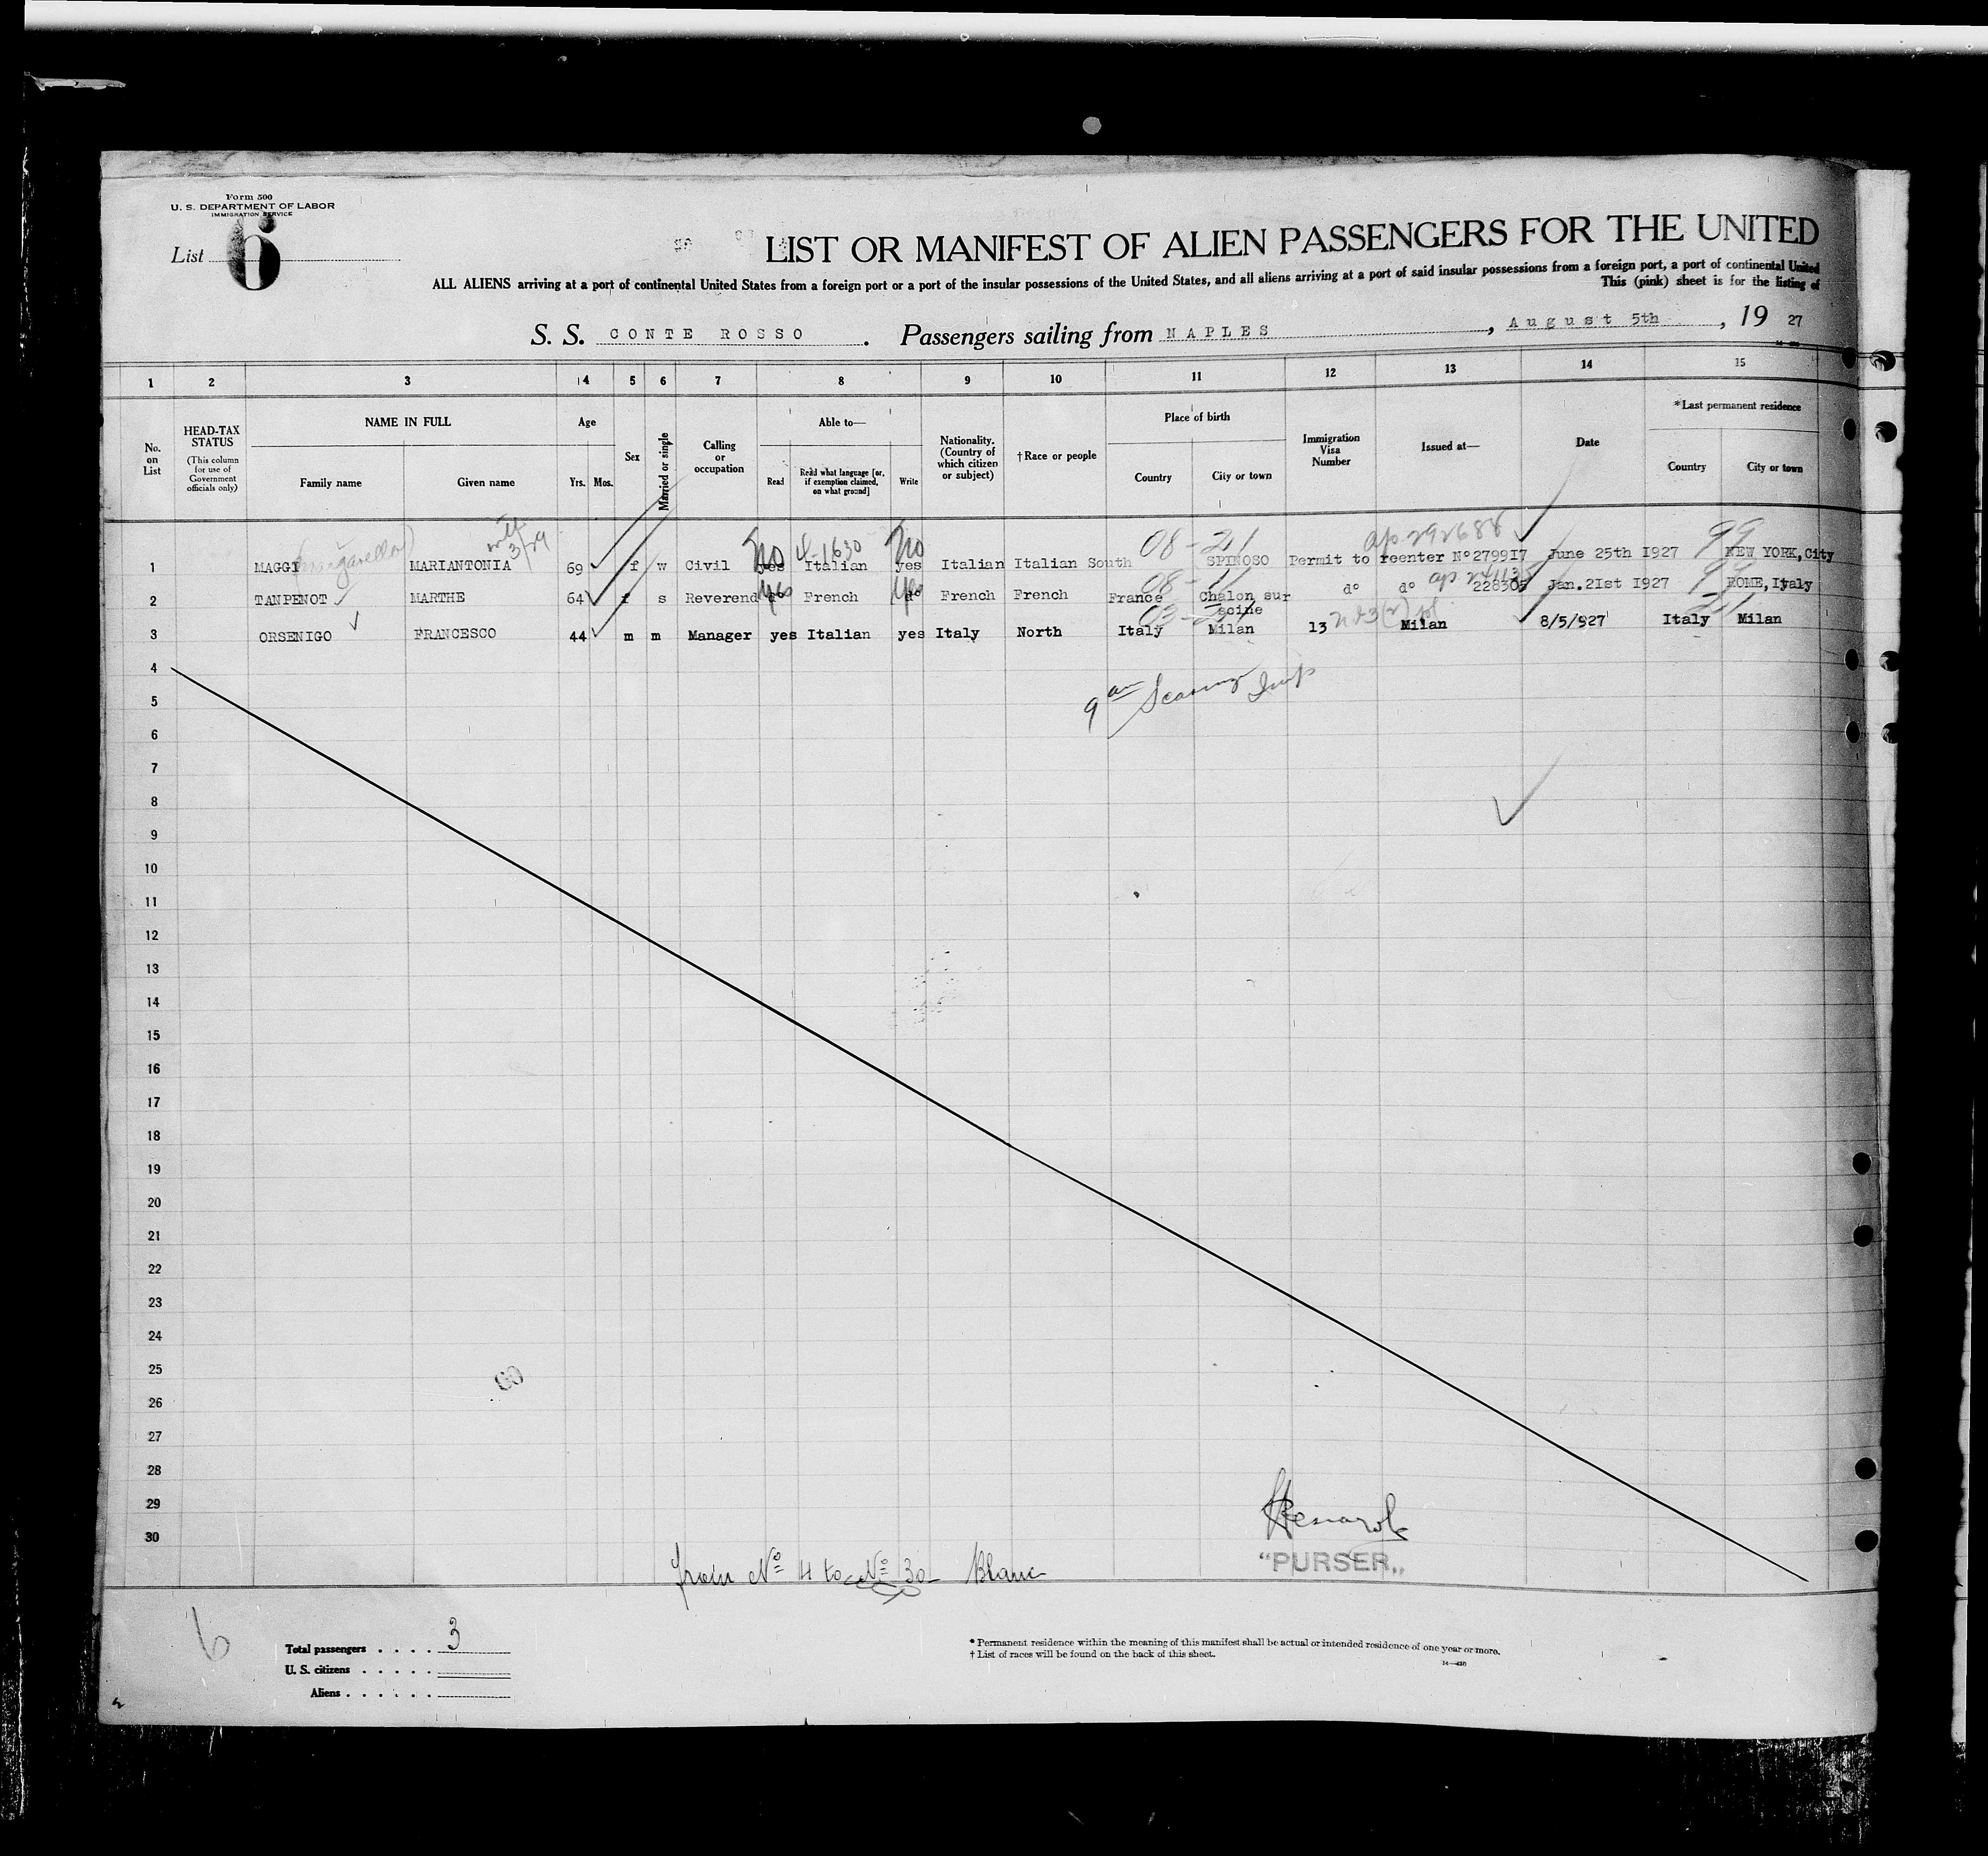 Form 500
U. S. DEPARTMENT OF LABOR
IMMIGRATION SERVICE
List 6
LIST OR MANIFEST OF ALIEN PASSENGERS FOR THE UNITED
ALL ALIENS arriving at a port of continental United States from a foreign port or a port of the insular possessions of the United States, and all aliens arriving at a port of said insular possessions from a foreign port, a port of continental United
This (pink) sheet is for the listing of
S. S. CONTE ROSSO. Passengers sailing from NAPLES, August 5th, 19 27
1 2 3 4 5 6 7 8 9 10 11 12 13 14 15
No. on List
HEAD-TAX STATUS
(This column for use of Government officials only)
NAME IN FULL
Family name
Given name
Age
Yrs. Mos.
Sex
Married or single
Calling or occupation
Able to—
Read
Read what language [or, if exemption claimed, on what ground]
Write
Nationality. (Country of which citizen or subject)
†Race or people
Place of birth
Country
City or town
Immigration Visa Number
Issued at—
Date
*Last permanent residence
Country
City or town
3/29
No 4-1630 No 08-21 ap 292688 99
1 MAGGI MARIANTONIA 69 f w Civil yes Italian yes Italian Italian South SPINOSO Permit to reenter Nº279917 June 25th I927 NEW YORK, City
yes yes 08-11 99
2 TANPENOT MARTHE 64 f s Reverend d° French d° French French France Chalon sur scine d° d° 228305 Jan.2Ist I927 ROME, Italy
3 ORSENIGO FRANCESCO 44 m m Manager yes Italian yes Italy North Italy Milan 13 Milan 8/5/927 Italy Milan
4
9 am
5
6
7
8
9
10
11
12
13
14
15
16
17
18
19
20
21
22
23
24
25
26
27
28
29
30
from Nº 4 to Nº 30 Blanc
"PURSER„
6
Total passengers . . . . 3
U. S. citizens . . . . .
Aliens . . . . . .
* Permanent residence within the meaning of this manifest shall be actual or intended residence of one year or more.
† List of races will be found on the back of this sheet.